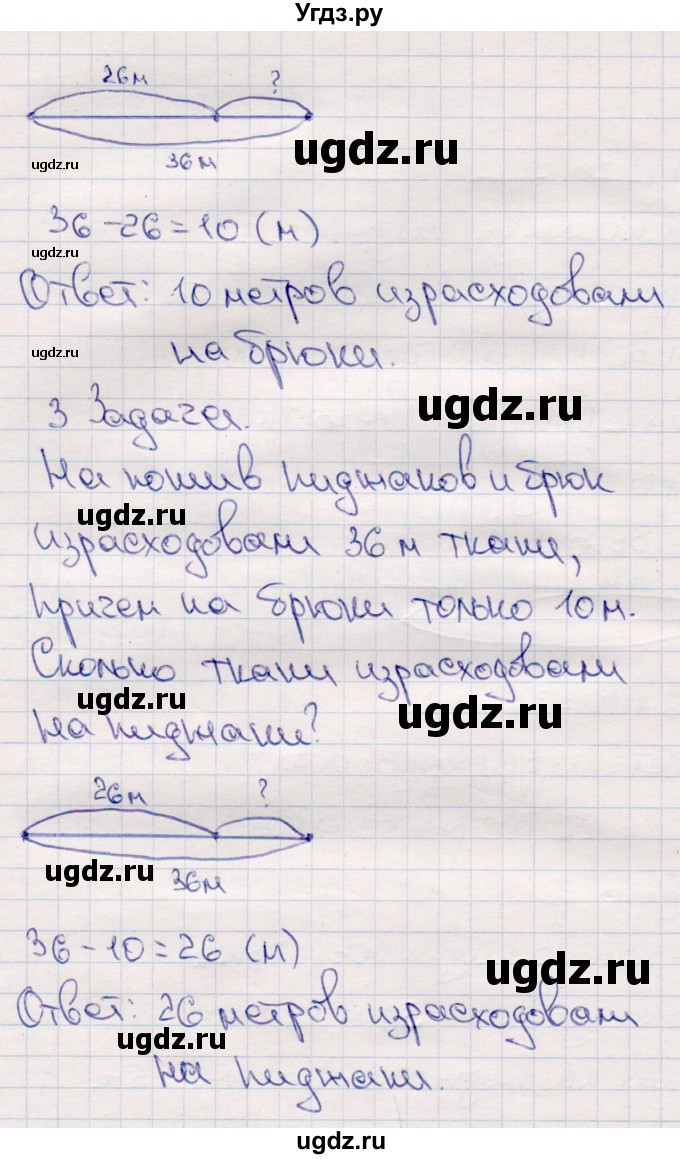 Угдз.ру
26м ?
ugdz.ru
ugdz.ru
36м
36-26=10 (м)
ugdz.ru
Ответ: 10 метров израсходовали
на брюки.
ugdz.ru
ugdz.ru
3 Задача.
На пошив пиджаков и брюк
ugdz.ru
израсходовали 36 м ткани,
причем на брюки только 10м.
Сколько ткани израсходовали
ugdz.ru
ugdz.ru
на пиджаки?
26м ?
ugdz.ru
36м
36-10=26 (м)
ugdz.ru
Ответ: 26 метров израсходовали
ugdz.ru
на пиджаки.
ugdz.ru